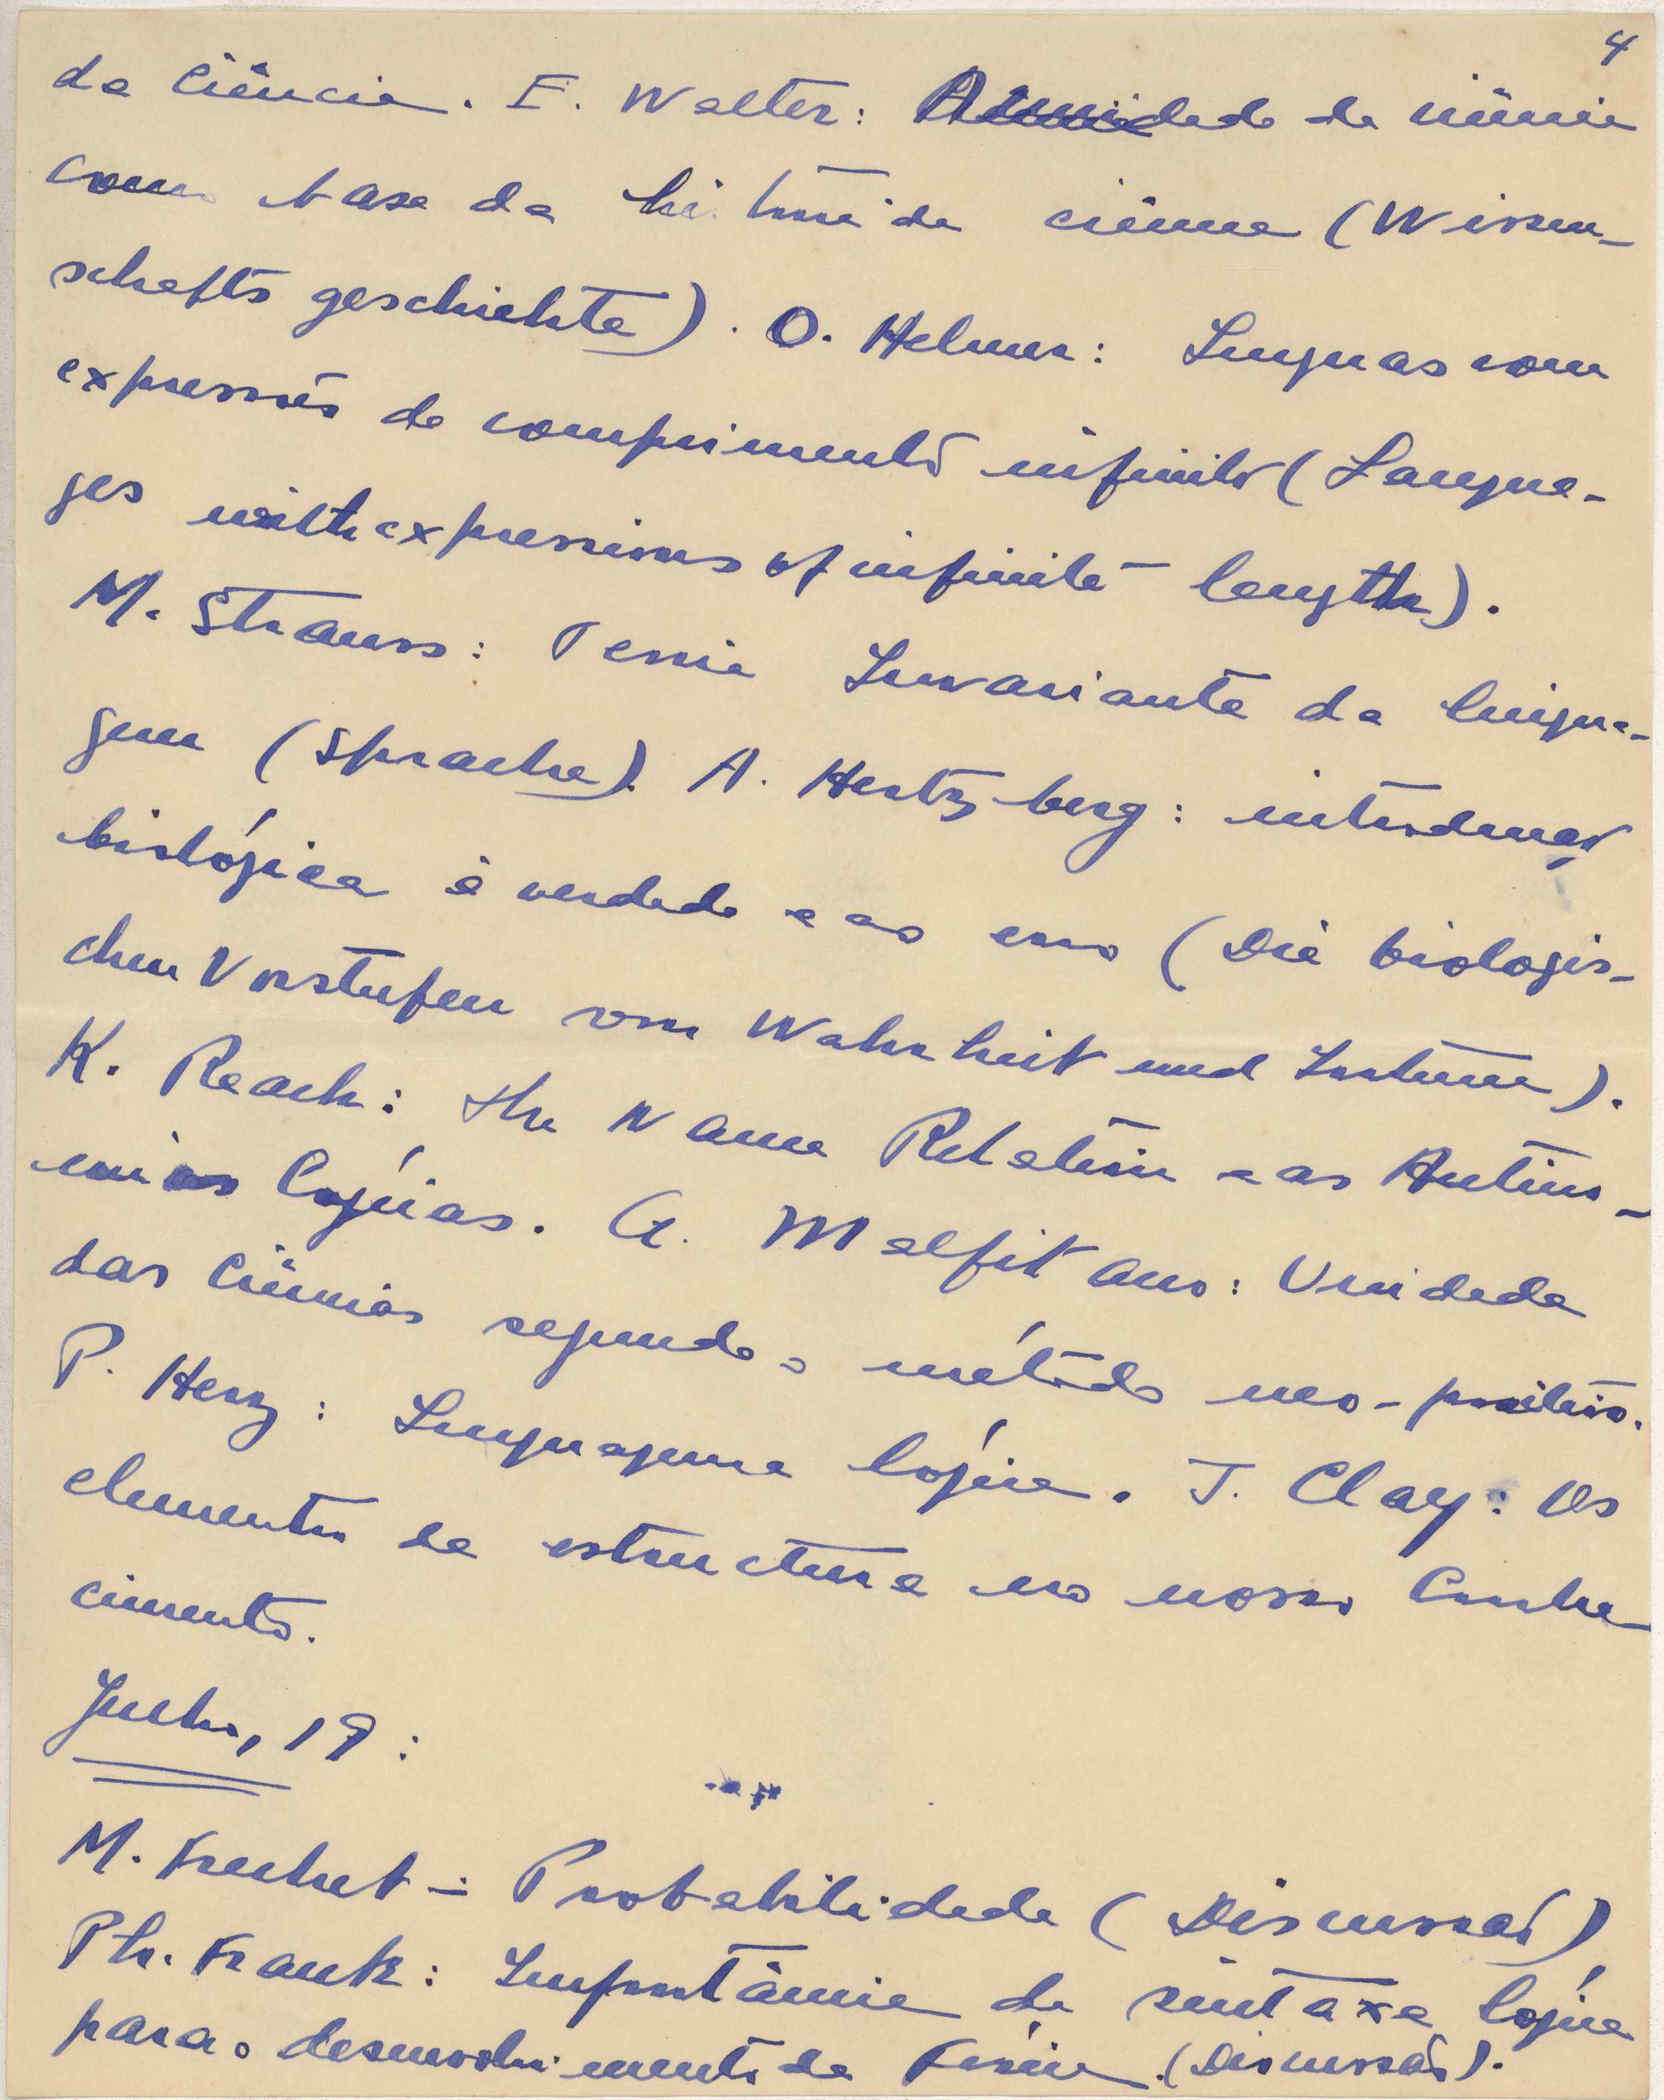 4
da Ciência. E. Walter: A unidade da ciência
como base da história da ciência (Wissen-
schafts geschichte). O. Helmer: Linguas com
expressões de comprimento infinito (Langua-
ges with expressions of infinite length).
M. Strauss: Teoria Invariante da lingua-
gem (Sprache). A. Hertzberg: introdução
biológica à verdade e ao erro (Die biologis-
chen Vorstufen von Wahrheit und Irrtum).
K. Reach: The Name Relation e as Antino-
mias Lógicas. G. Malfitano: Unidade
das Ciências segundo o método neo-positivo.
P. Herz: Linguagem e lógica. J. Clay: Os
elementos de estructura no nosso Conhe
cimento.
Julho, 19:
M. Frechet - : Probabilidade (Discussão)
Ph. Frank: Importância da sintaxe lógica
para o desenvolvimento da Física. (Discussão).